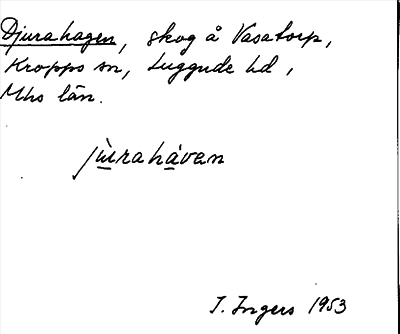 Djurahagen, skog å Vasatorp,
Kropps sn, Luggude hd,
Mhs län.
jùrahávan
I. Ingers 1953